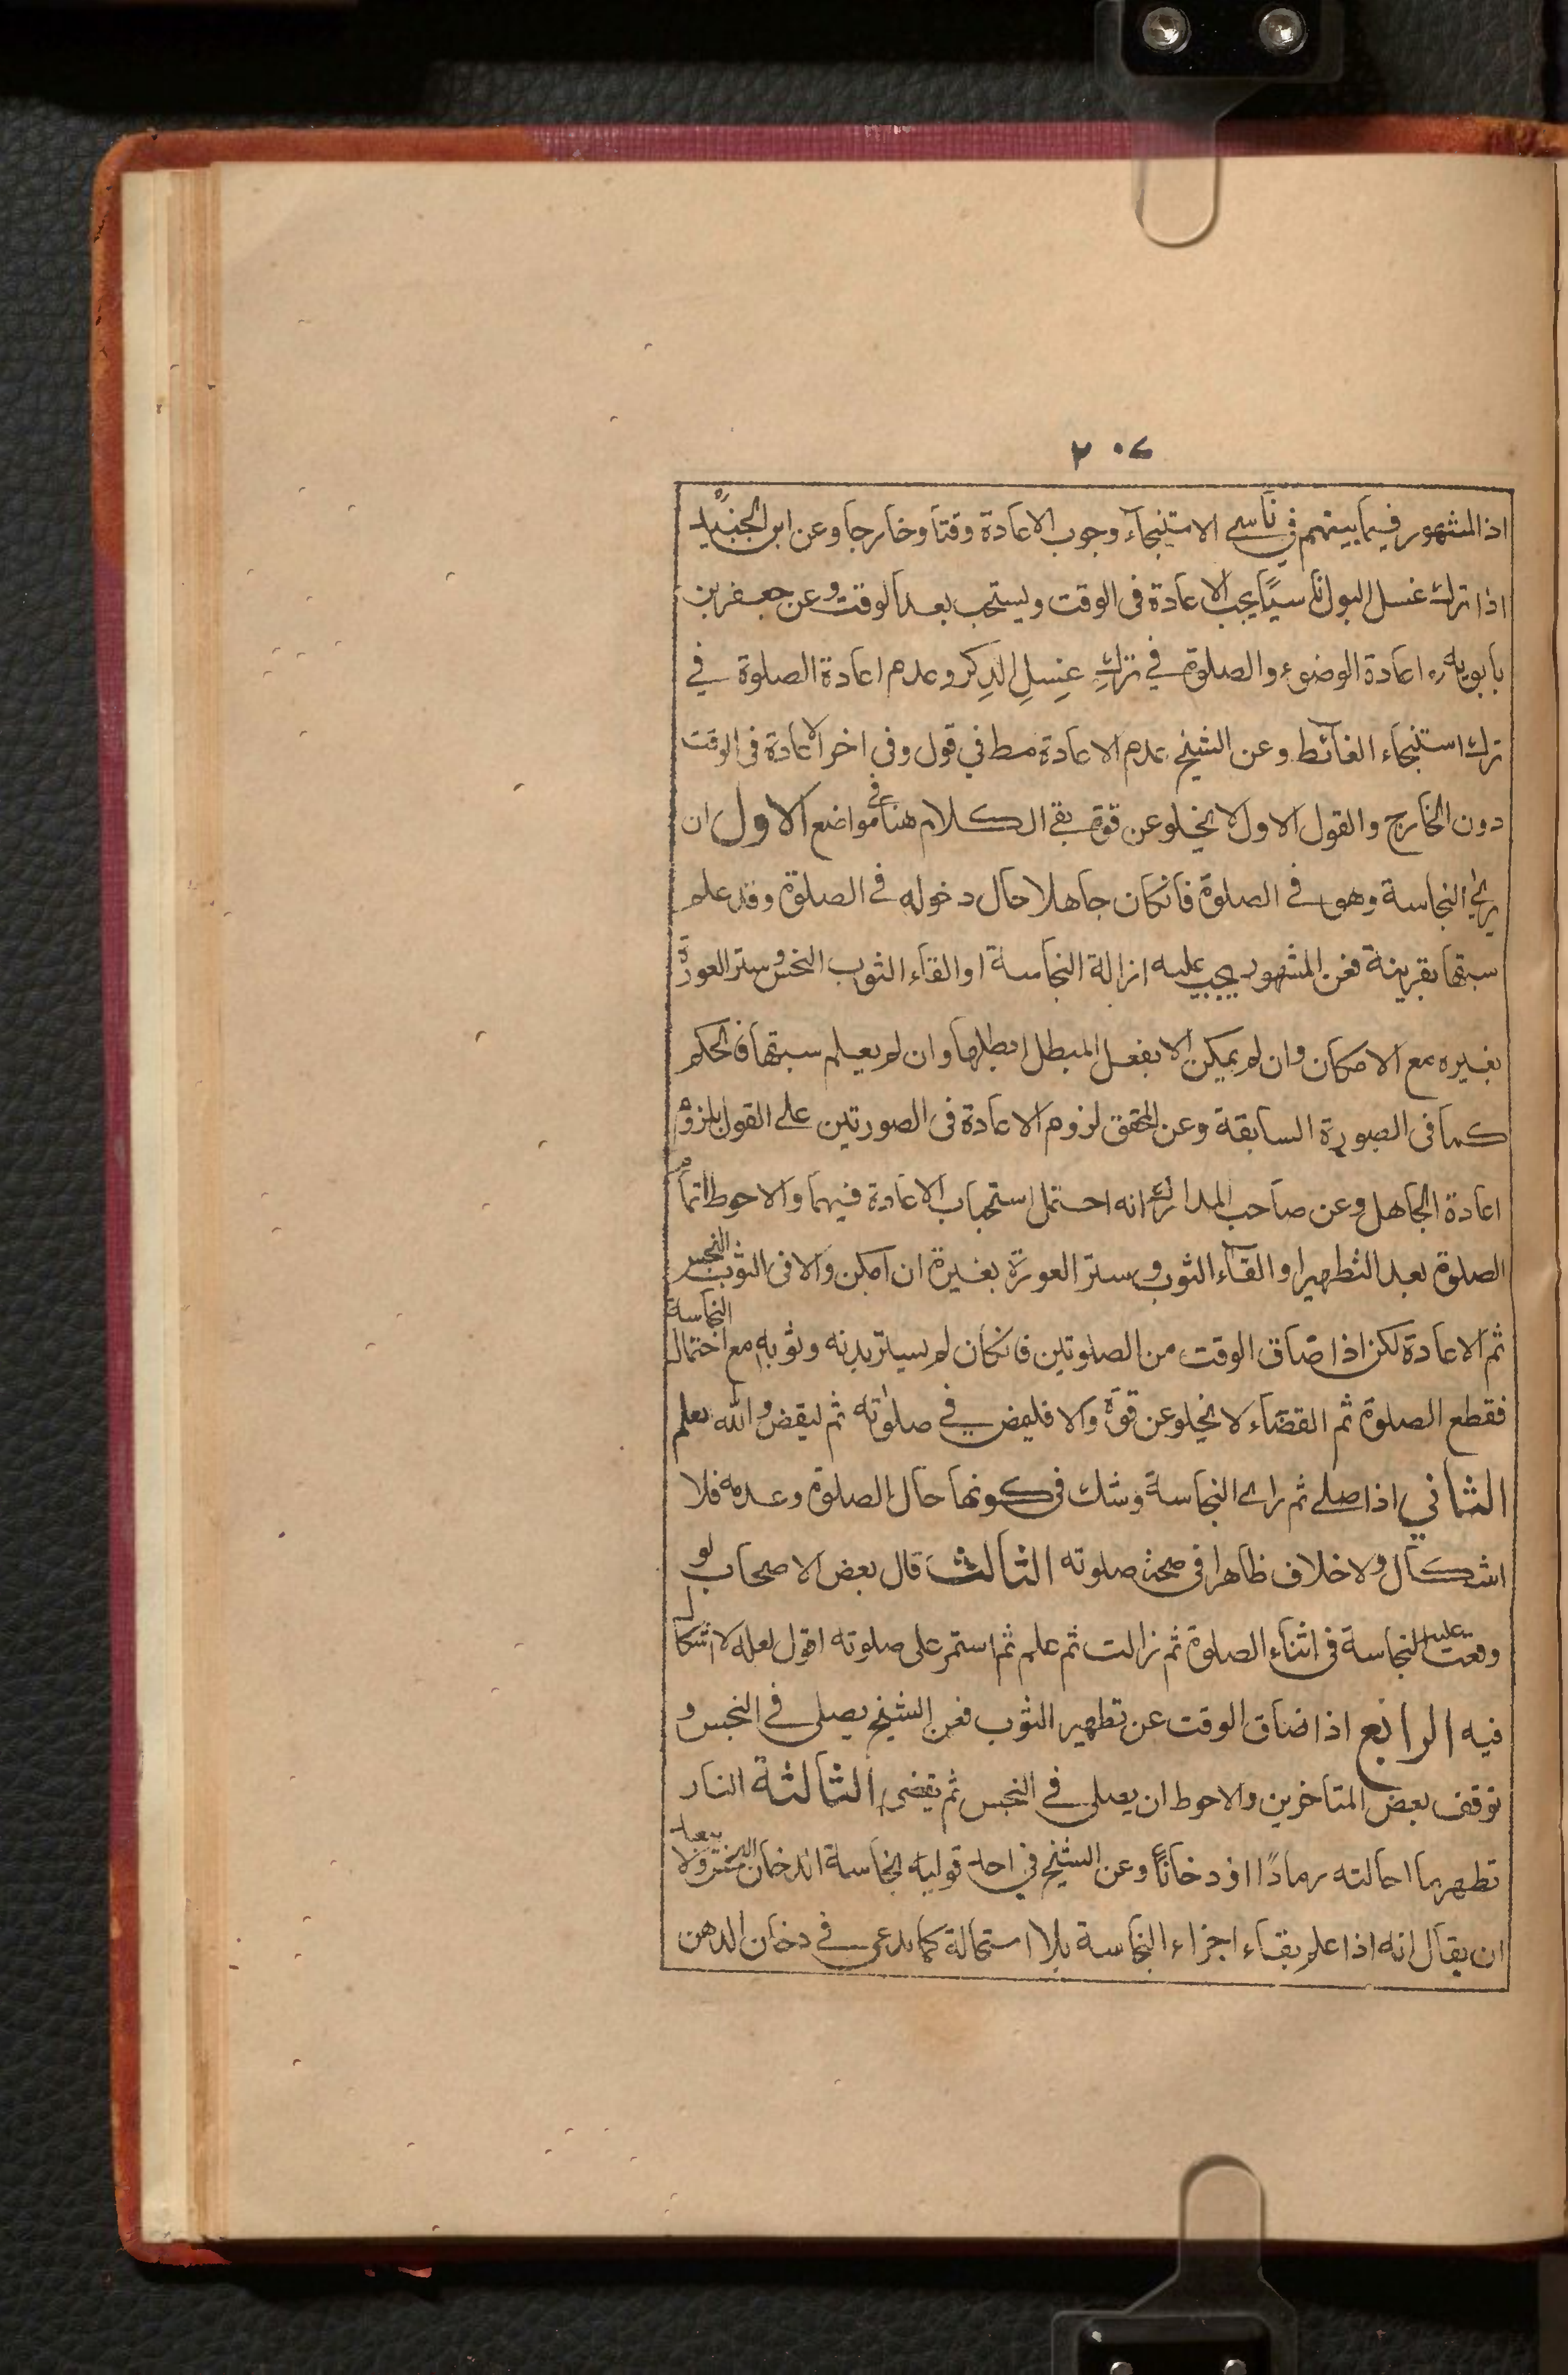 ٢٠٤
اذ المشهور فيما بينهم في ناسي الاستنجاء وجوب الاعادة وقتا وخارجا وعن ابن الجنيد
اذا ترك غسل البول ناسيًا يجب الاعادة فى الوقت ويستحب بعد الوقت وعن جعفر بن
بابويه ره اعادة الوضوء والصلوة في ترك غسل الذكر وعدم اعادة الصلوة في
ترك استنجاء الغائط وعن الشيخ عدم الاعادة مط في قول وفى اخر الاعادة فى الوقت
دون الخارج والقول الاول لا يخلو عن قوة بقى الكلام هنا فى مواضع الاول ان
يرى النجاسة وهو في الصلوة فانكان جاهلا حال دخوله في الصلوة وقد علم
سبقها بقرينة فعن المشهور يجب عليه ازالة النجاسة او القاء الثوب النجس وستر العورة
بغيره مع الامكان وان لم يمكن الا بفعل المبطل ابطلها وان لم يعلم سبقها فالحكم
كما فى الصورة السابقة وعن المحقق لزوم الاعادة فى الصورتين على القول بلزوم
اعادة الجاهل وعن صاحب المدارك انه احتمل استحباب الاعادة فيهما والاحوط اتمام
الصلوة بعد التطهير او القاء الثوب وستر العورة بغيرة ان امكن والا فى الثوب النجس
ثم الاعادة لكن اذا ضاق الوقت من الصلوتين فانكان لم يستر بدنه وثوبه مع احتمال النجاسة
فقطع الصلوة ثم القضاء لا يخلو عن قوة والا فليمض في صلوته ثم ليقض والله يعلم
الثاني اذا صلى ثم راى النجاسة وشك فى كونها حال الصلوة وعدمه فلا
اشكال ولا خلاف ظاهرا فى صحة صلوته الثالث قال بعض الاصحاب لو
وقعت عليه النجاسة فى اثناء الصلوة ثم زالت ثم علم ثم استمر على صلوته اقول لعله لا اشكال
فيه الرابع اذا ضاق الوقت عن تطهير الثوب فعن الشيخ يصلى في النجس و
توقف بعض المتاخرين والاحوط ان يصلى في النجس ثم يقضى الثالثة النار
تطهر ما احالته رمادًا او دخانًا وعن الشيخ في احد قوليه نجاسة الدخان ولا يبعد
ان يقال انه اذا علم بقاء اجزاء النجاسة بلا استحالة كما يدعى في دخان الدهن